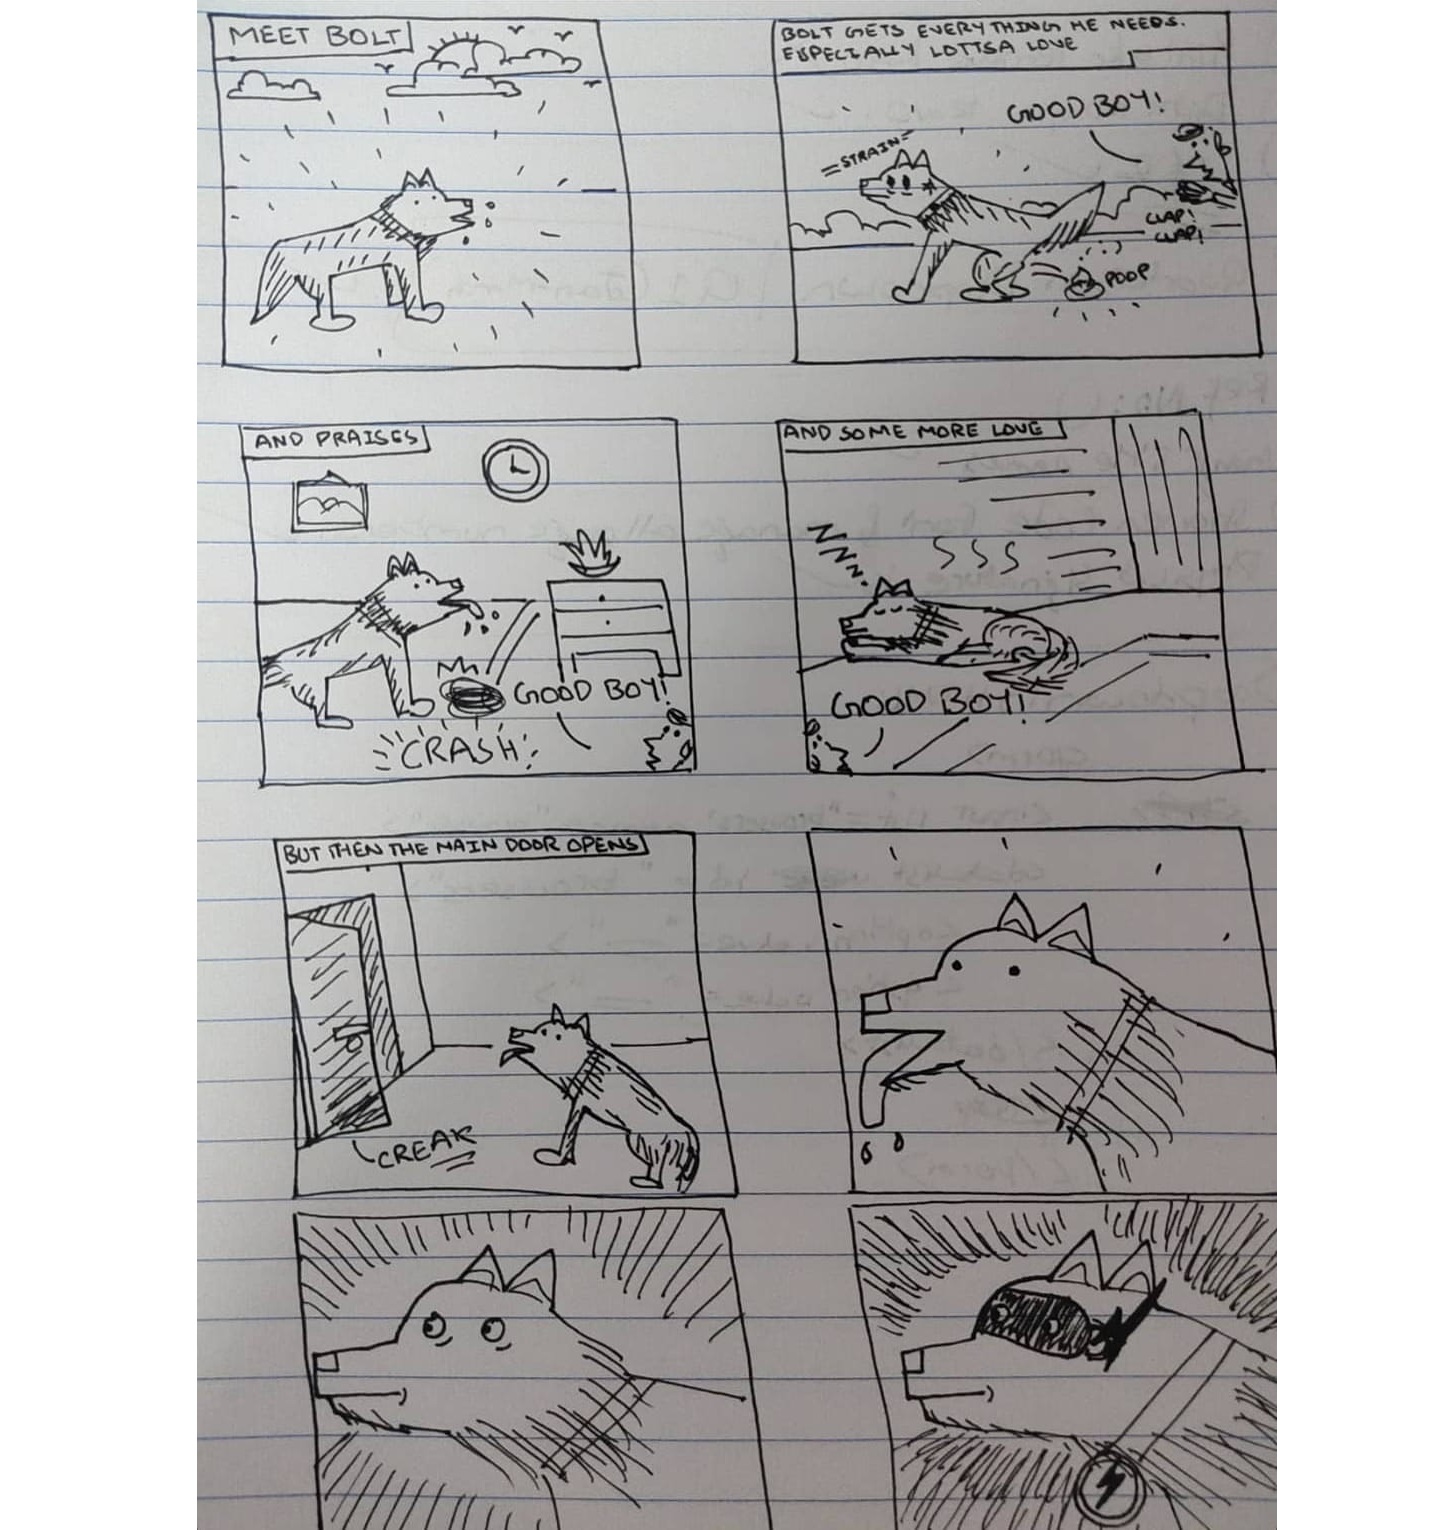 MEET BOLT
BOLT GETS EVERYTHING HE NEEDS.
ESPECIALLY LOTTSA LOVE
GOOD BOY!
STRAIN
CLAP!
CLAP!
POOP
AND PRAISES
GOOD BOY!
CRASH
AND SOME MORE LOVE
ZZZZZ
SSS
GOOD BOY!
BUT THEN THE MAIN DOOR OPENS
CREAK